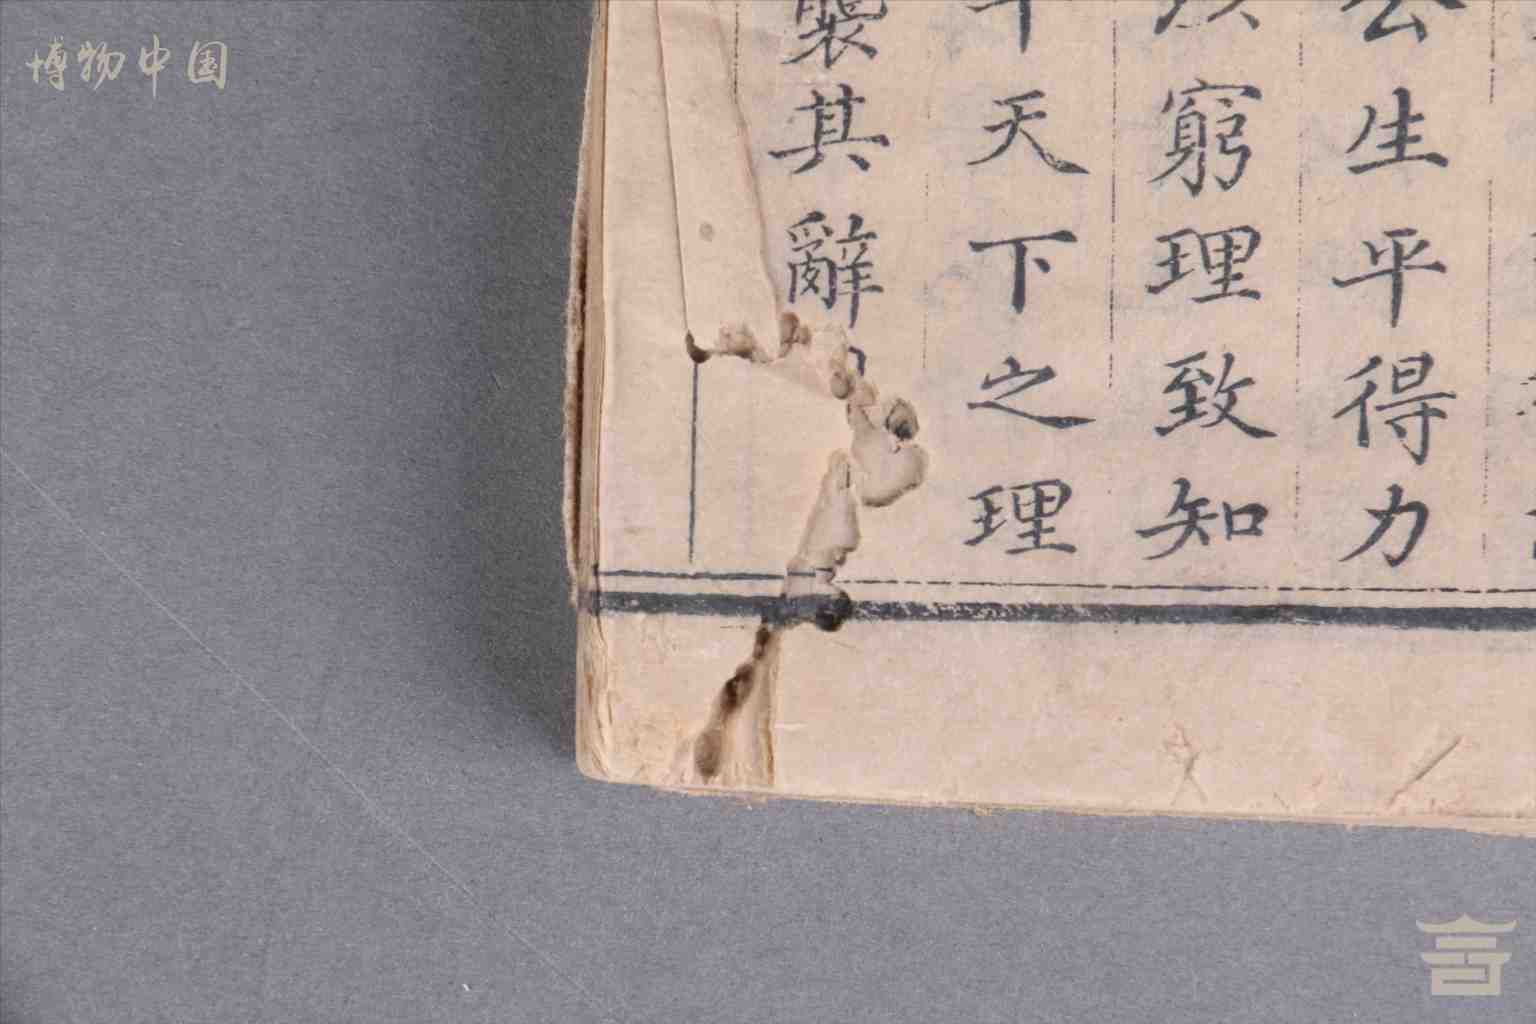 博物中国
公生平得力
窮理致知
天下之理
襲其辭